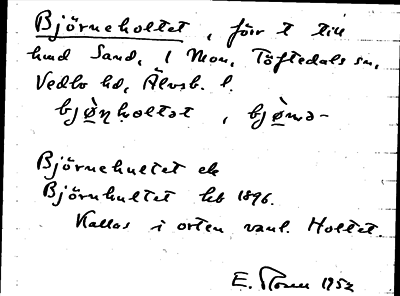 Björneholtet, förr t till
hmd Sand, 1 Mon, Töftedals sn,
Vedbo hd, Älvsb. l.
bjø̀ṇhọltət, bjø̀ṇə-
Björnehultet ek
Björnhultet hb 1896.
Kallas i orten vanl. Holtet.
E. 1952